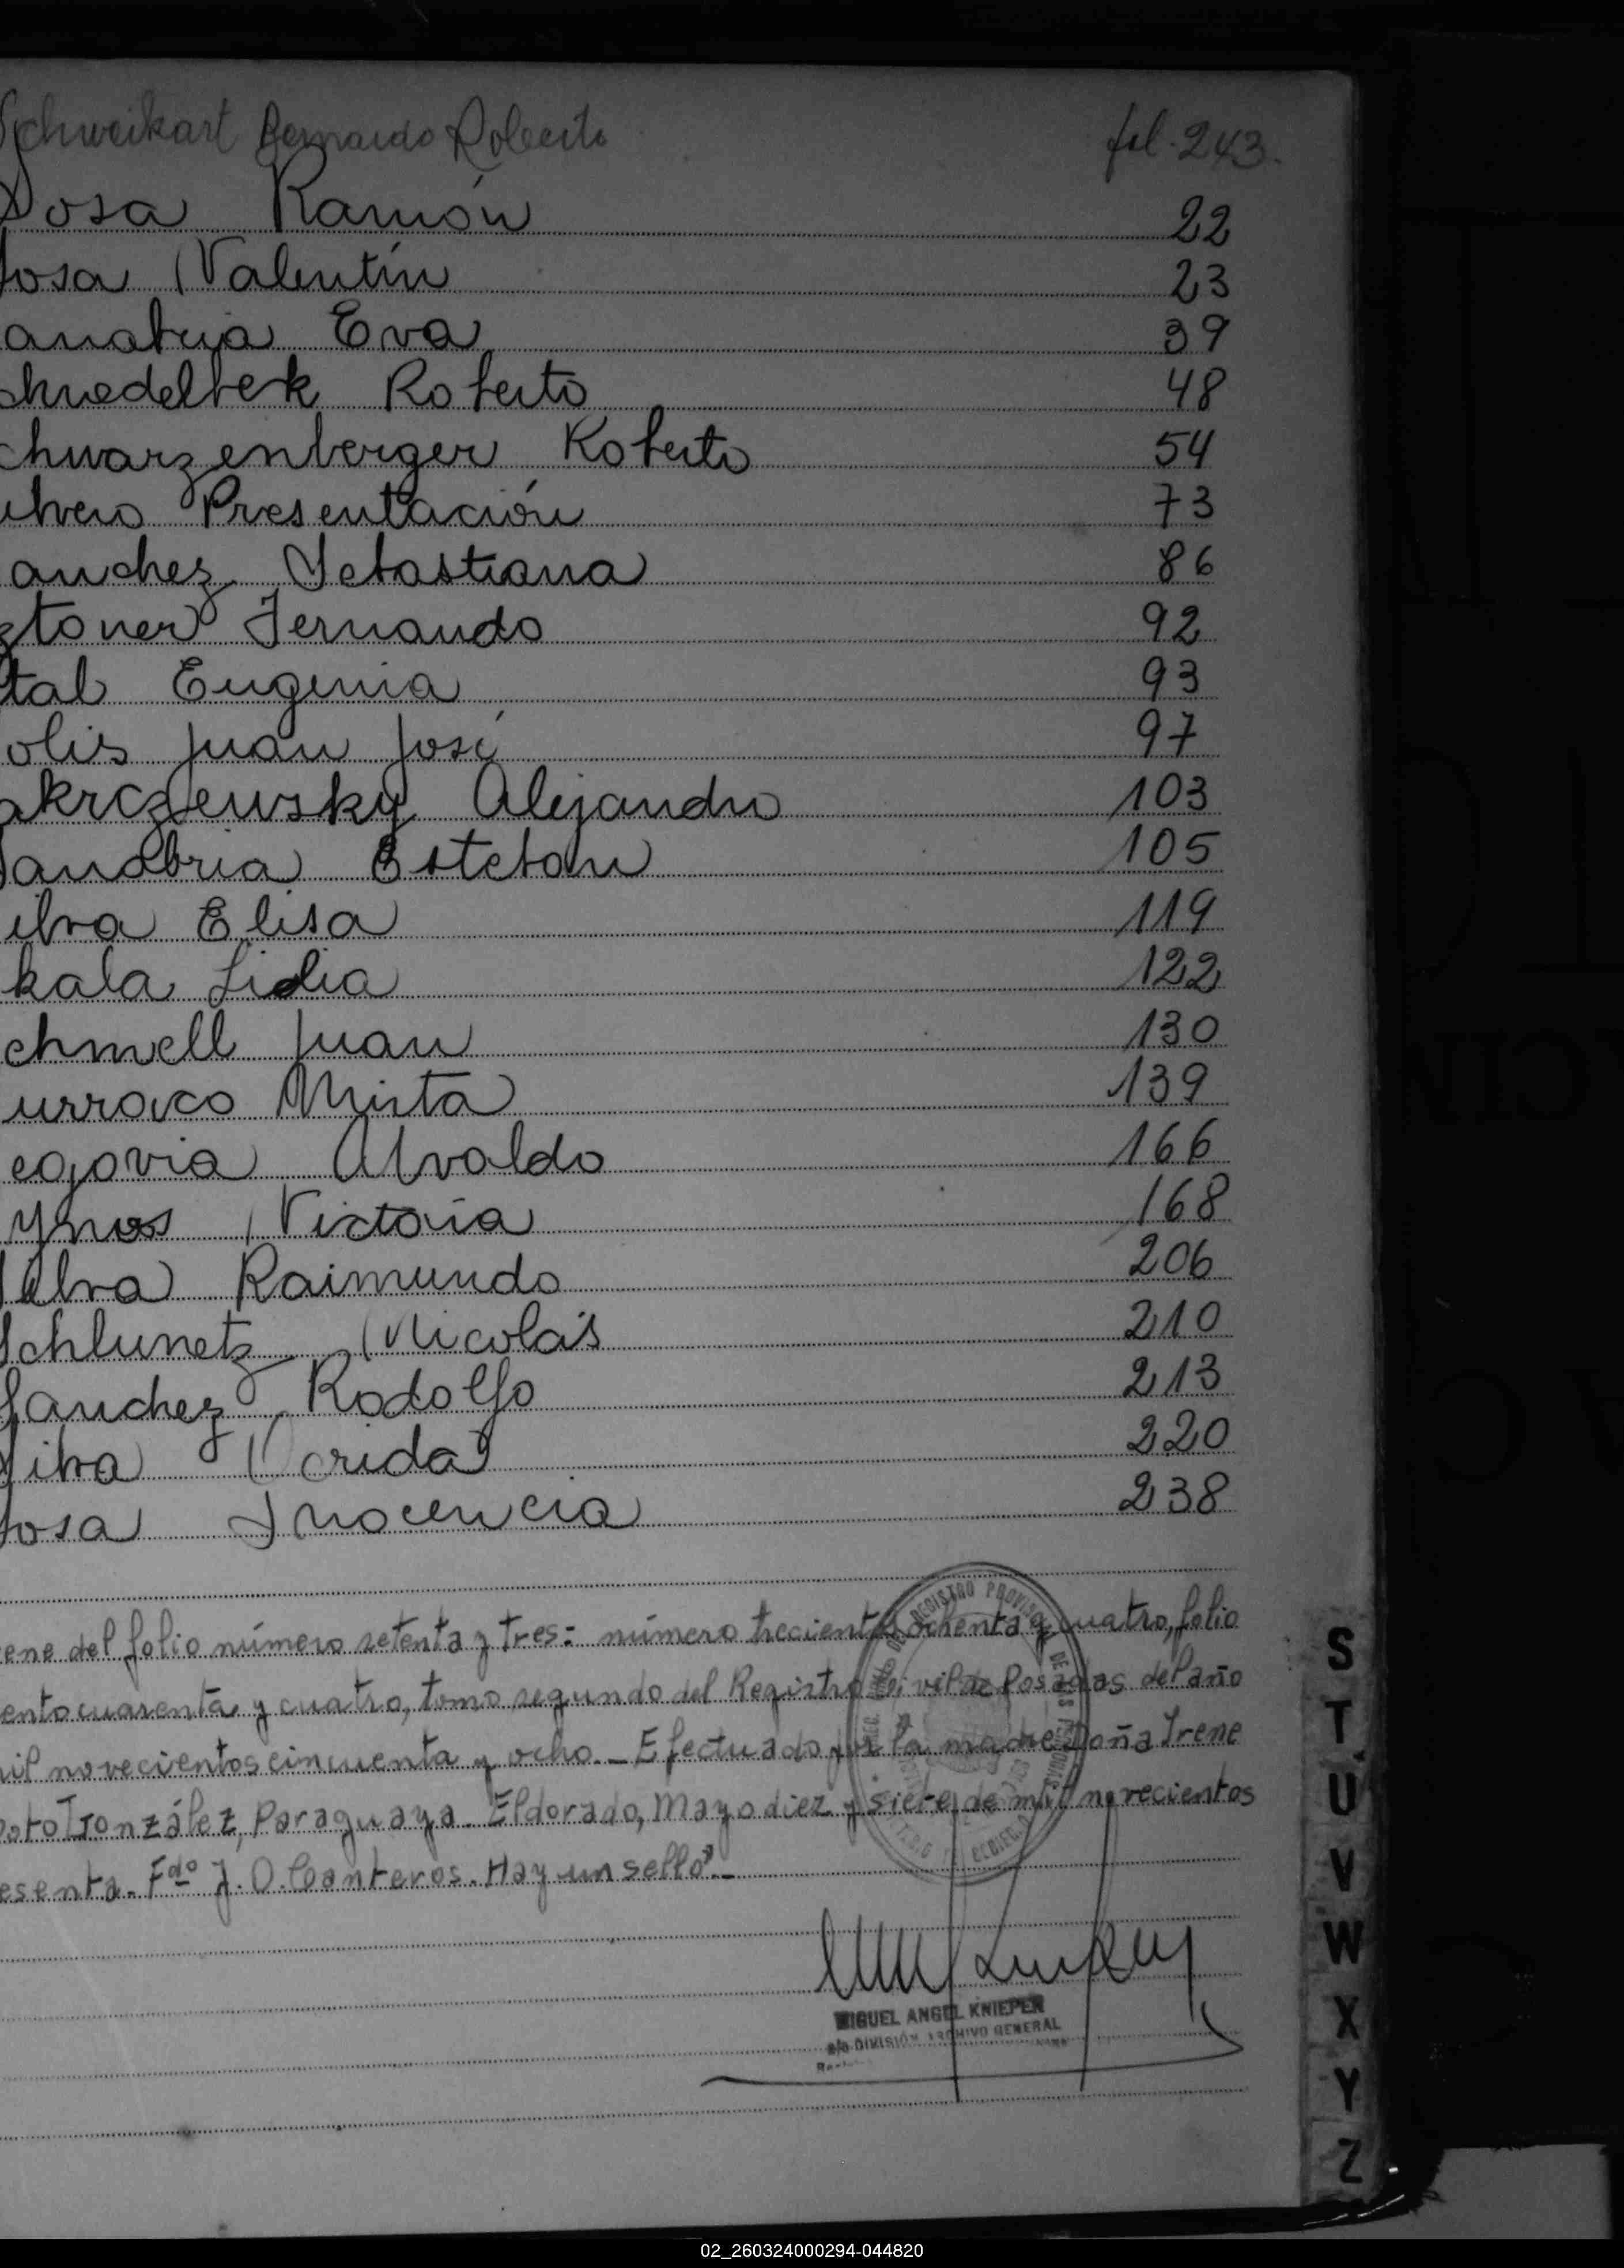 Schweikart Bernardo Roberto fol. 243.
Sosa Ramón 22
Sosa Valentín 23
anabria Eva 39
48
chwarzenberger Roberto 54
Presentación 73
anchez Sebastiana 86
ztoner Fernando 92
tal Eugenia 93
olis Juan José 97
akrczewsky Alejandro 103
Sanabria Esteban 105
ilva Elisa 119
kala Lidia 122
chmell Juan 130
urraco Mirta 139
egovia Alvaldo 166
Victoria 168
Silva Raimundo 206
Schlunetz Nicolás 210
Sanchez Rodolfo 213
Silva 220
Sosa Inocencia 238
ene del folio número setenta y tres: número trecientos ochenta y cuatro, folio
ento cuarenta y cuatro, tomo segundo del Registro Civil de Posadas del año
mil novecientos cincuenta y ocho._ Efectuado por la madre Doña Irene
oto González, Paraguaya. Eldorado, Mayo diez y siete de mil novecientos
esenta. Fdo J. O. Canteros. Hay un sello"._
REGISTRO PROVINCIAL DE LAS PERSONAS
MIGUEL ANGEL KNIEPER
a/c DIVISIÓN ARCHIVO GENERAL
S
T
U
V
W
X
Y
Z
02_260324000294-044820